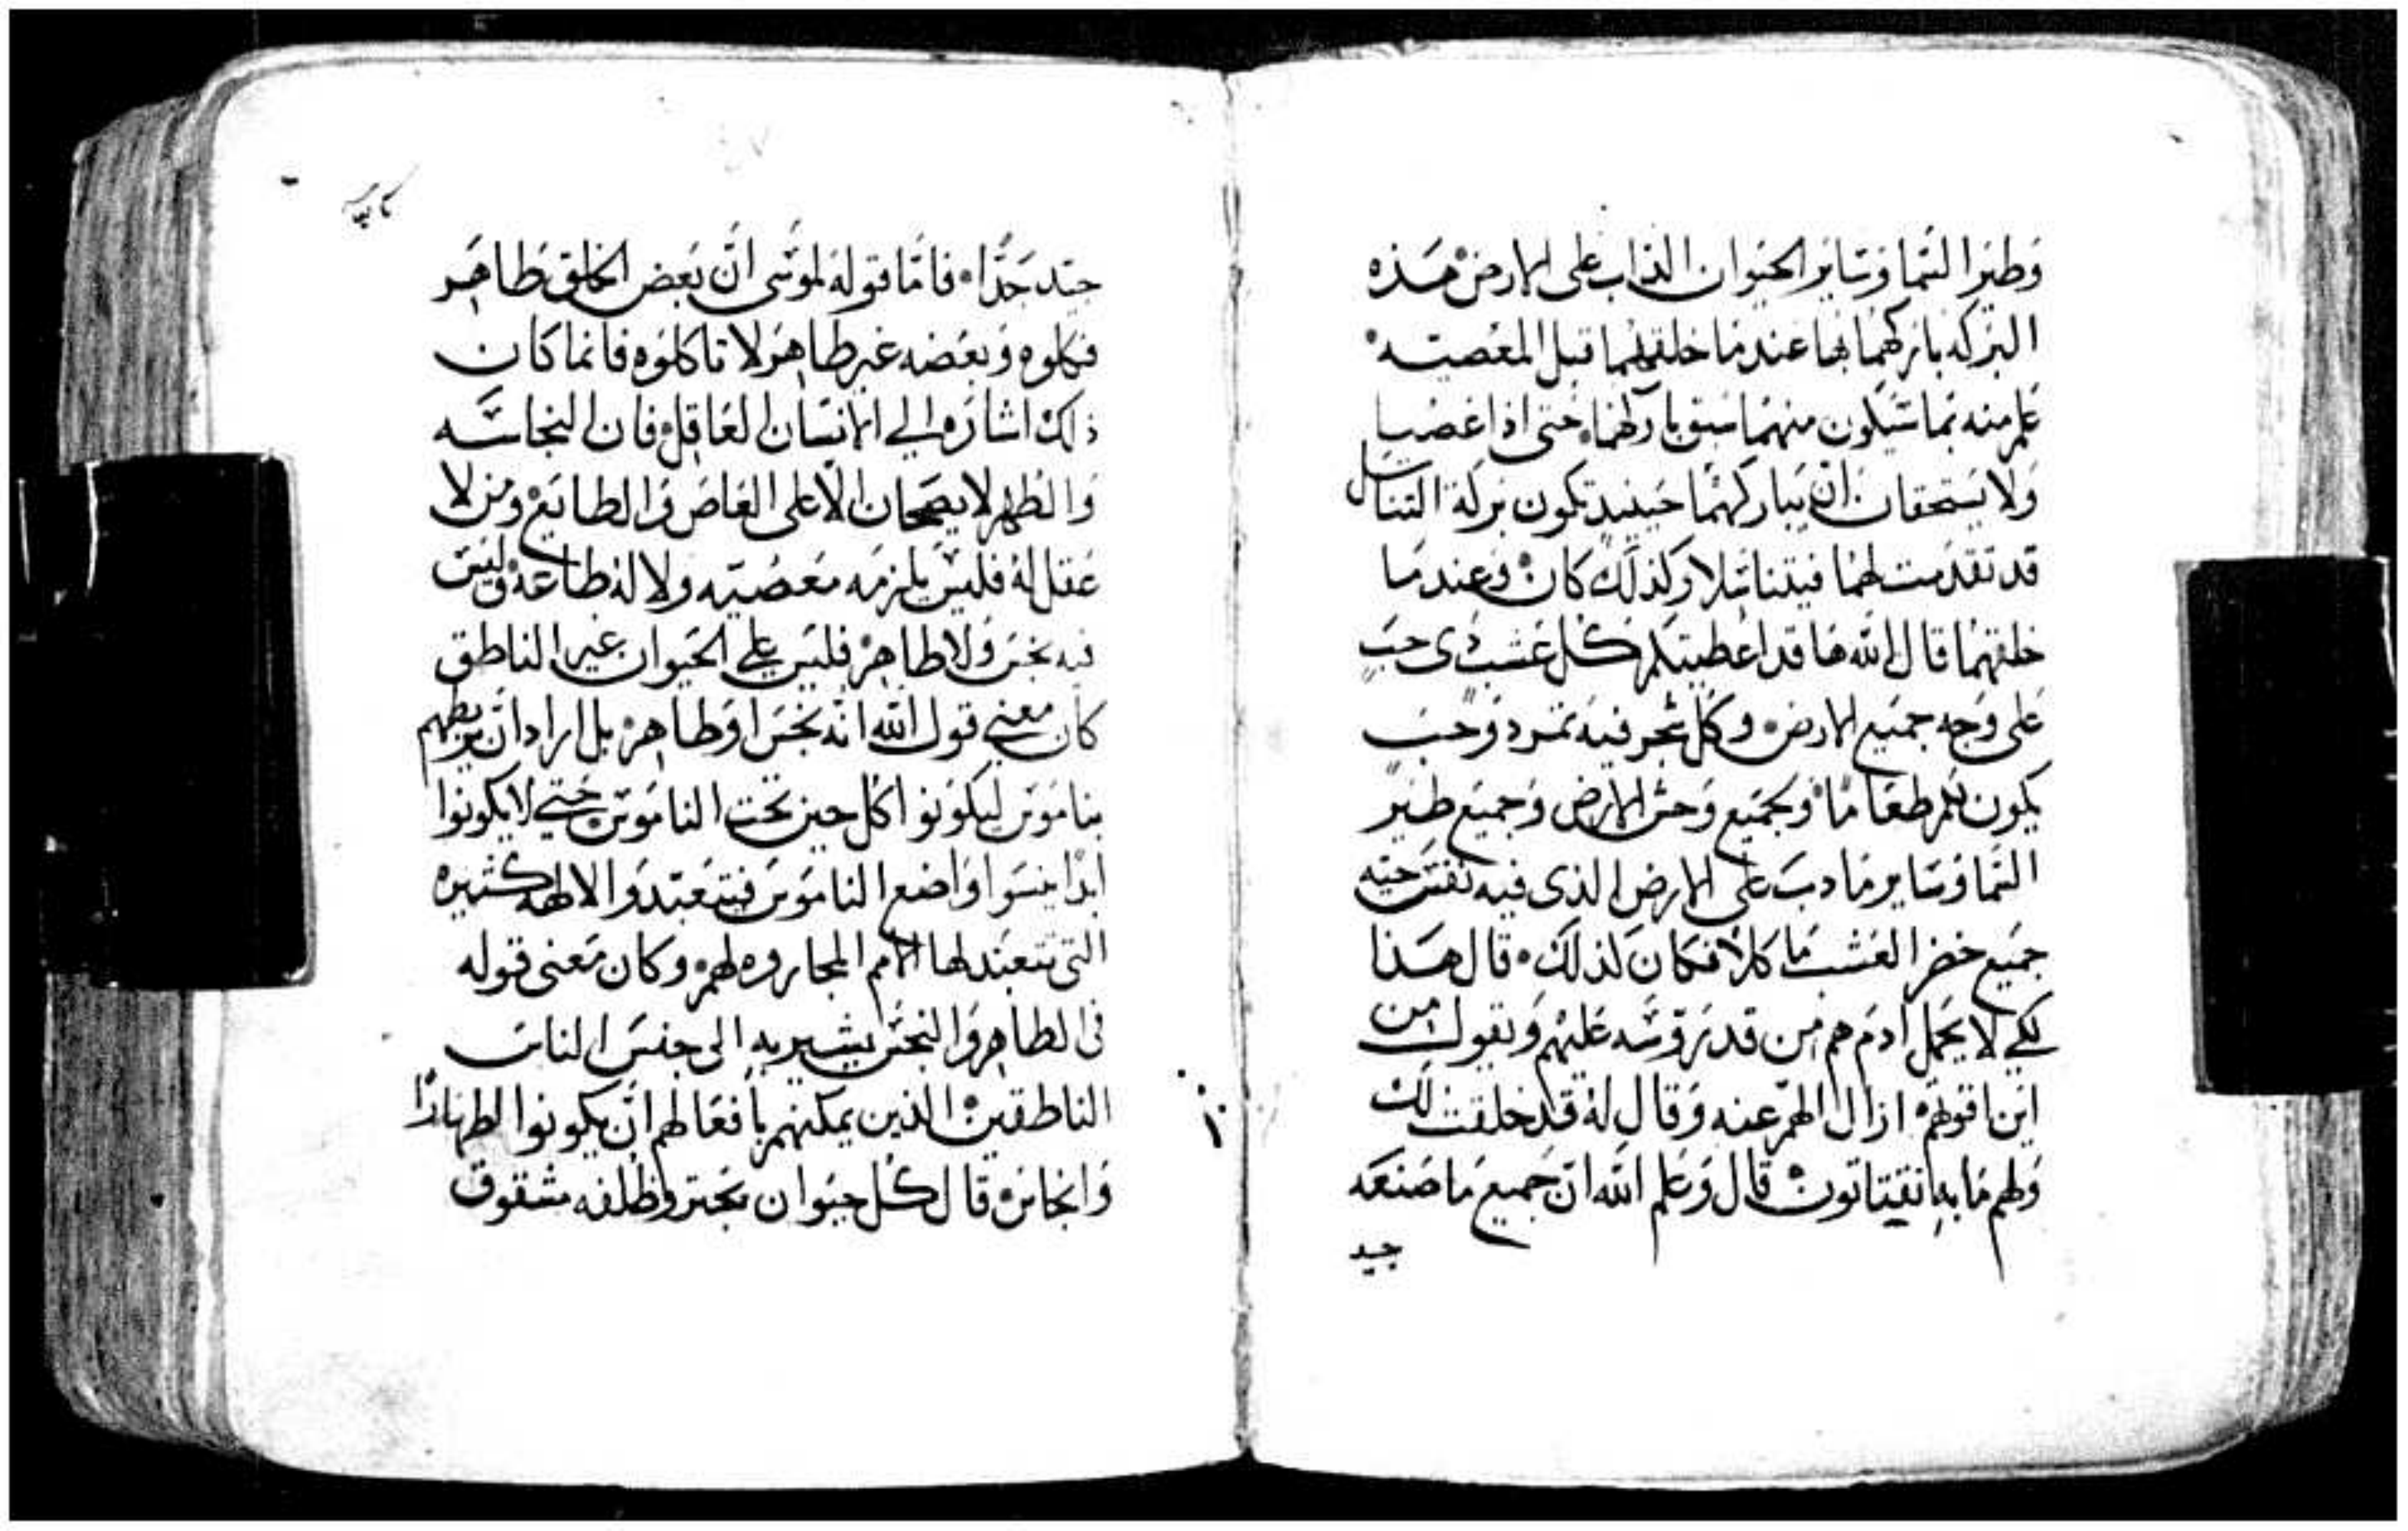 وَطير السَّما وَسَاير الحيَوان الداب على الارض هَذه
البركه باركهمَا بها عندمَا خلقهما قبل المعصيَه
علم منه بما سَيكون منهمَا سبق باركهمَا حتى اذا عصَيا
وَلا يسَتحقان ان يبَاركهمَا حينيد تكون بركة التناسل
قد تقدمت لهمَا فيتناسَلا وَكذلك كان وَعندمَا
خلقهمَا قال الله هَا قد اعطيتكم كل عَشب ذى حب
على وَجه جميَع الارض وكل شجر فيه تمره وَحبَ
يكون لكم طعَامًا ولجميَع وَحش الارض وَجميَع طير
السَّما وَسَاير مَا دبَ على الارض الذى فيه نفسَ حيَه
جميَع خضر العَشب ماكلا فكان كذلك قال هَذا
لكي لا يحمل ادمَ هم من قد تروسَّه عَليهم وَيقول من
اين اقوتهم ازال الهم عنه وَقال له قد خلقت لك
وَلهم مَا به تقتاتون قال وَعَلم الله ان جميع مَا صَنعَه
جيد
جيَد جَدًّا فامَّا قوله لموسَى انّ بَعض الخلق طَاهَر
فكلوه وَبعَضه غير طاهَر لا تاكلوَه فانما كَان
ذلك اشارَه الي الانسَان العَاقل فان النجاسَه
وَالطهر لا يصَحان الا على العَاصَ وَالطايَع ومن لا
عَقل له فليسَ يلزمَه معَصيَه ولا له طاعَه وليسَ
فيه نجسَ وَلا طاهر فليسَ علي الحَيوان غير الناطق
كان معني قول الله انه نجسَ اوَ طاهر بل اراد ان يربطهم
بنامَوسَ ليكوَنوا كل حين تحت النامَوسَ حتي لا يكونوا
ابدًا ينسَوا وَاضع النامَوسَ فيتعَبدوَا لالهه كثيره
التى تتعبَد لها الامم المجاروه لهم وكان مَعنى قوله
فى الطاهر وَالنجسَ يشير به الى جنسَ الناسَ
الناطقين الذين يمكنهم بافعَالهم ان يكونوا اطهارًا
وَانجاسَ قال كل حيَوان يجتر وظلفه مشقوق